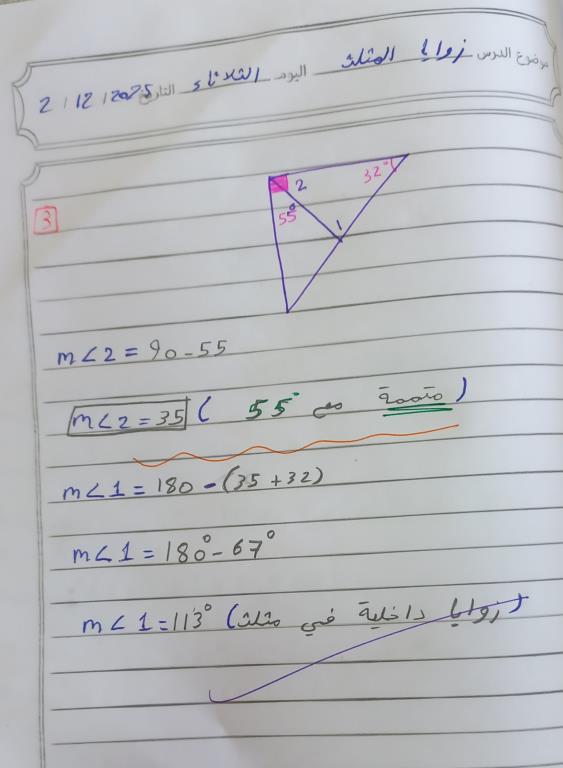 موضوع الدرس زوايا المثلث اليوم الثلاثاء التاريخ 2025 / 12 / 2
3
2
32°
55°
1
m∠2 = 90 - 55
m∠2 = 35 ( متممة مع 55° )
m∠1 = 180 - (35 + 32)
m∠1 = 180° - 67°
m∠1 = 113° (زوايا داخلية في مثلث)